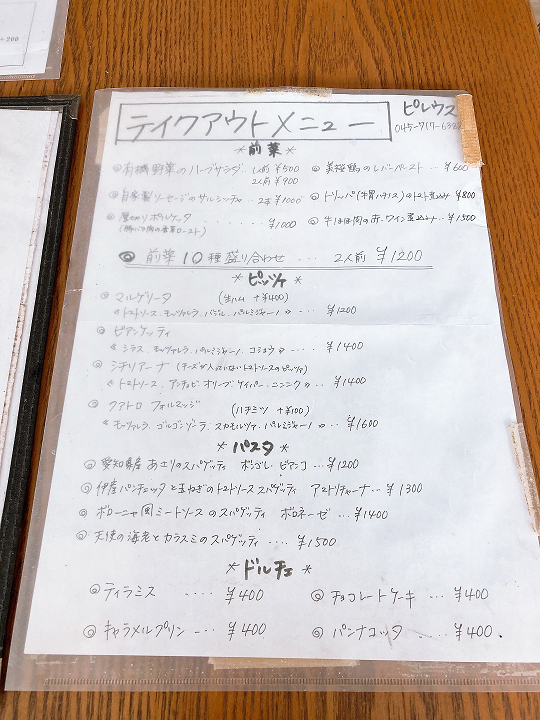 +200
テイクアウトメニュー
ピレウス
045-717-6382
*前菜*
◎有機野菜のハーブサラダ 1人前 ¥500
2人前 ¥900
◎美桜鶏のレバーペースト … ¥600
◎自家製ソーセージのサルシッチャ … 2本 ¥1000
◎トリッパ(牛胃ハチノス)のトマト煮込み ¥800
◎厚切りポルケッタ
(豚バラ肉の香草ロースト) … ¥1000
◎牛ほほ肉の赤ワイン煮込み … ¥1500
◎ 前菜10種盛り合わせ … 2人前 ¥1200
*ピッツァ*
◎ マルゲリータ (生ハム +¥400)
《トマトソース、モッツァレラ、バジル、パルミジャーノ》 … ¥1200
◎ ビアンケッティ
《シラス、モッツァレラ、パルミジャーノ、コショウ》 … ¥1400
◎ シチリアーナ (チーズが入っていないトマトソースのピッツァ)
《トマトソース、アンチョビ、オリーブ、ケイパー、ニンニク》 … ¥1400
◎ クアトロ フォルマッジ (ハチミツ +¥100)
《モッツァレラ、ゴルゴンゾーラ、スカモルツァ、パルミジャーノ》 … ¥1600
*パスタ*
◎ 愛知県産 あさりのスパゲッティ ボンゴレ・ビアンコ … ¥1200
◎ 伊産パンチェッタと玉ねぎのトマトソーススパゲッティ アマトリチャーナ … ¥1300
◎ ボローニャ風ミートソースのスパゲッティ ボロネーゼ … ¥1400
◎ 天使の海老とカラスミのスパゲッティ … ¥1500
*ドルチェ*
◎ティラミス …. ¥400
◎チョコレートケーキ … ¥400
◎キャラメルプリン …. ¥400
◎パンナコッタ … ¥400.